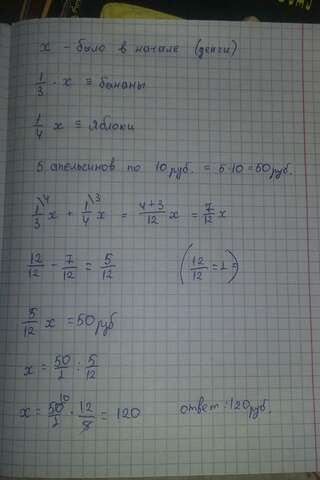 x - было в начале (денги)
1/3 · x = бананы
1/4 x = яблоки
5 апельсинов по 10 руб. = 5·10=50 руб.
1\4/3 x + 1\3/4 x = 4+3/12 x = 7/12 x
12/12 - 7/12 = 5/12 (12/12 = 1)
5/12 x = 50 руб
x = 50/1 : 5/12
x = 50 10/1 · 12/5 = 120 ответ: 120 руб.